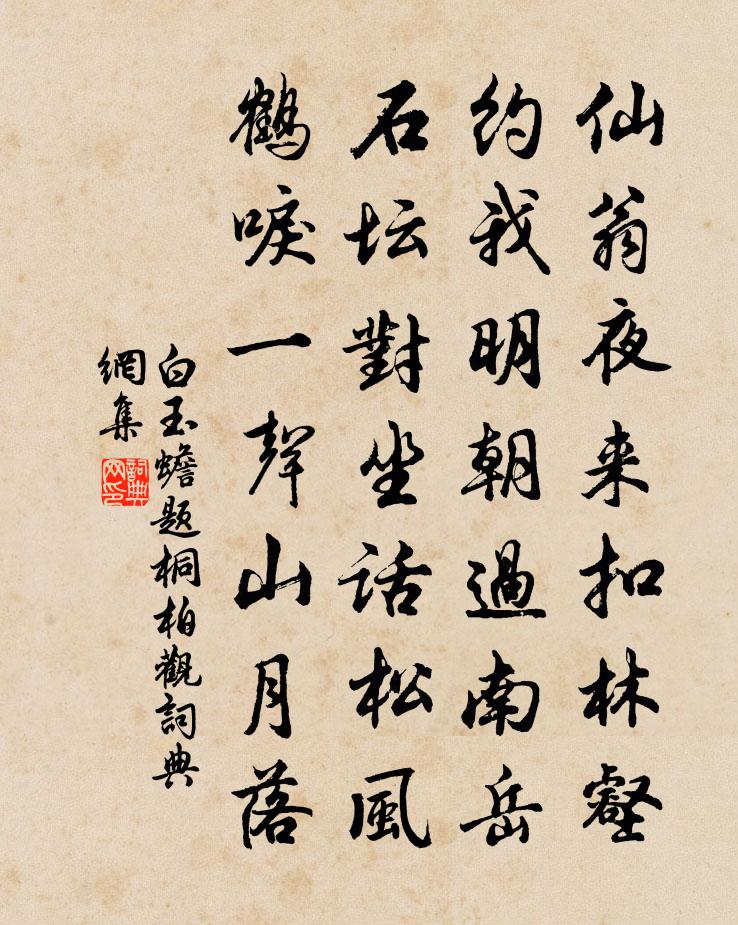 仙翁夜来扣林壑
約我明朝過南岳
石坛對坐話松風
鶴唳一聲山月落
白玉蟾题桐柏觀詞典
網集
詞典
网印